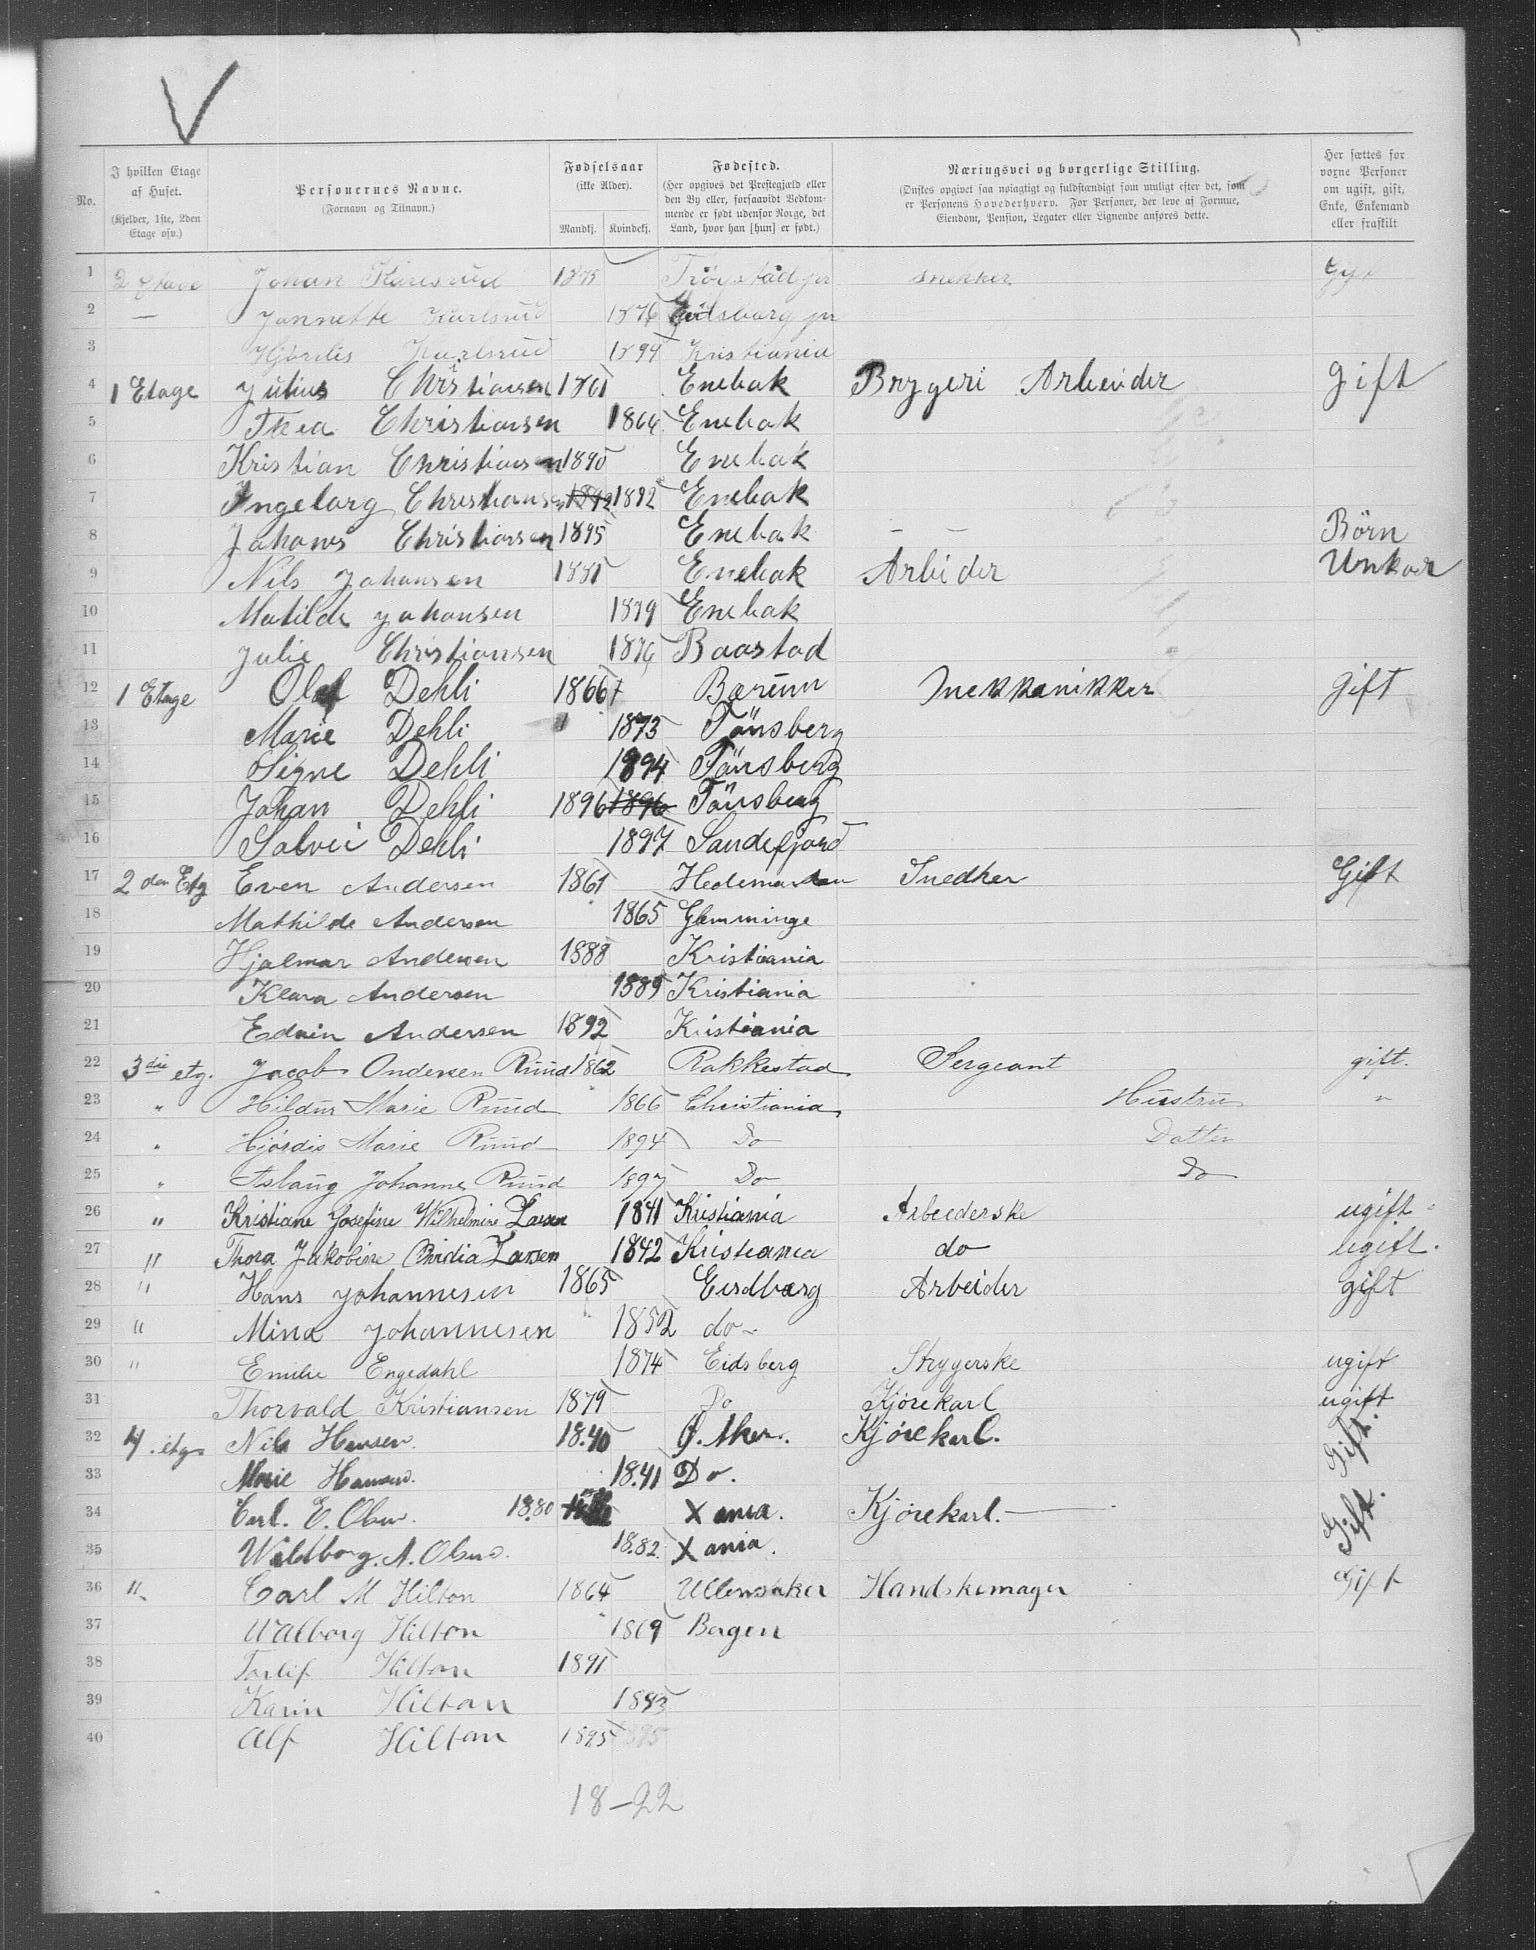 V
No.
I hvilken Etage af Huset. (Kjelder, 1ste, 2den Etage osv.)
Personernes Navne. (Fornavn og Tilnavn.)
Fødselsaar (ikke Alder). Mandkj. Kvindekj.
Fødested. (Her opgives det Prestegjæld eller den By eller, forsaavidt Vedkommende er født udenfor Norge, det Land, hvor han [hun] er født.)
Næringsvei og borgerlige Stilling. (Ønskes opgivet saa nøiagtigt og fuldstændigt som muligt efter det, som er Personens Hovederhverv. For Personer, der leve af Formue, Eiendom, Pension, Legater eller Lignende anføres dette.
Her sættes for voxne Personer om ugift, gift, Enke, Enkemand eller fraskilt
1 2 Etage Johan Karlsrud 1875 Trøgstad pr snekker Gift
2 — Jannette Karlsrud 1876 Eidsberg pr
3 Hjørdis Karlsrud 1899 Kristiania
4 1 Etage Julius Christiansen 1861 Enebak Bryggeri Arbeider gift
5 Thea Christiansen 1864 Enebak
6 Kristian Christiansen 1890 Enebak
7 Ingeborg Christiansen 1892 1892 Enebak
8 Johanes Christiansen 1895 Enebak — — Børn
9 Nils Johansen 1881 Enebak Arbeider Unkar
10 Matilde Johansen 1879 Enebak
11 Julie Christiansen 1876 Baastad
12 1 Etage Olaf Dehli 1866 Bærum Mekkanikker gift
13 Marie Dehli 1873 Tönsberg
14 Signe Dehli 1894 Tönsberg
15 Johan Dehli 1896 1896 Tönsberg
16 Solvei Dehli 1897 Sandefjord
17 2 den Etg Even Andersen 1861 Hedemarken Snedker Gift
18 Mathilde Andersen 1865 Glemminge
19 Hjalmar Andersen 1888 Kristiania
20 Klara Andersen 1889 Kristiania
21 Edvin Andersen 1892 Kristiania
22 3die etg. Jacob Andersen Ruud 1862 Rakkestad Sergeant gift.
23 " Hildur Marie Ruud 1866 Christiania Hustru "
24 " Hjørdis Marie Ruud 1894 Do Datter
25 " Aslaug Johanne Ruud 1897 Do Do
26 " Kristiane Josefine Wilhelmine Larsen 1841 Kristiania Arbeiderske ugift
27 " Thora Jakobine Larsen 1842 Kristiania do ugift.
28 " Hans Johannesen 1865 Eidsberg Arbeider gift
29 " Mina Johannesen 1852 do
30 " Emilie Engedahl 1874 Eidsberg Strygerske ugift
31 Thorvald Kristiansen 1879 Do Kjørekarl ugift
32 4. etg. Nils Hansen. 18.40 Ø. Aker. Kjørekarl. Gift.
33 Marie Hansen. 18.41 Do.
34 Carl. E. Olsen. 18.80 Xania. Kjørekarl. — Gift.
35 Waldborg. A. Olsen. 18.82. Xania.
36 " Carl M Hilton 1864 Ullensaker Handskemager Gift
37 Walborg Hilton 1869 Bergen
38 Torlif Hilton 1891
39 Karin Hilton 1893
40 Alf Hilton 1895 1895
18-22